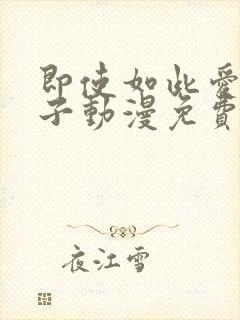 即使如此愛
子動漫免費
夜江雪